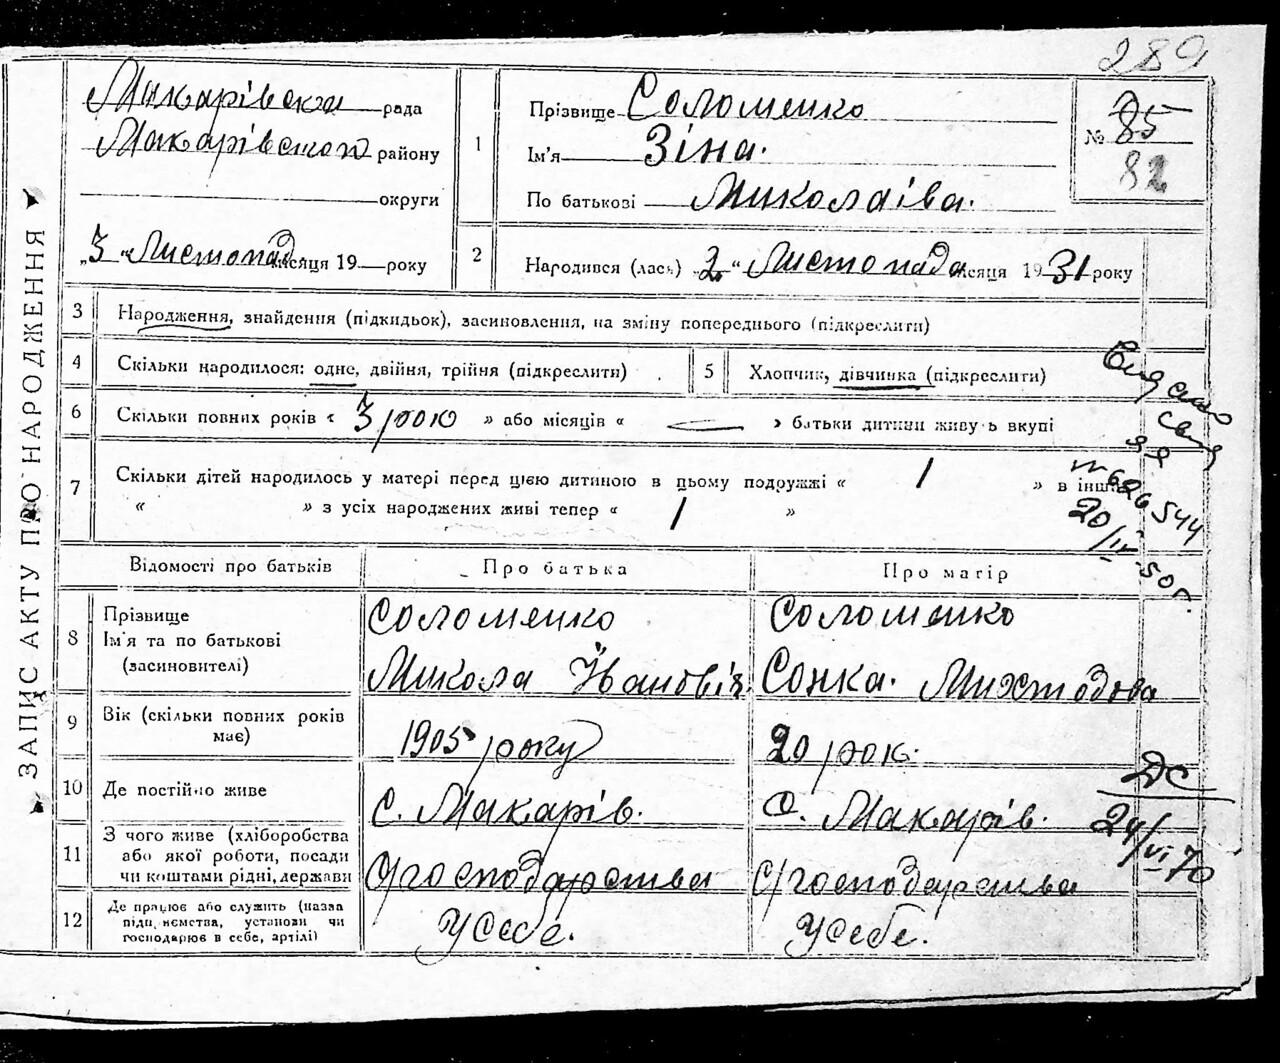 289
ЗАПИС АКТУ ПРО НАРОДЖЕННЯ
Макарівська рада
Макарівського району
округи
„3 “ Листопад місяця 19 року
1
Прізвище Соломенко
Ім'я Зіна.
По батькові Миколаіва.
№ 85
82
2
Народився (лась) „2 “ Листопада місяця 1931 року
3
Народження, знайдення (підкидьок), засиновлення, на зміну попереднього (підкреслити)
4
Скільки народилося: одне, двійня, трійня (підкреслити)
5
Хлопчик, дівчинка (підкреслити)
6
Скільки повних років « 3 рокю » або місяців « — » батьки дитини живуть вкупі
7
Скільки дітей народилось у матері перед цією дитиною в цьому подружжі « 1 » в інш
« » з усіх народжених живі тепер « 1 »
Видано
свид
ЯЯ
№ 626544
20/IV-50г.
Відомості про батьків
Про батька
Про матір
8
Прізвище
Ім'я та по батькові
(засиновителі)
Соломенко
Микола Івановіч
Соломенко
Сонка.
9
Вік (скільки повних років
має)
1905 року
20 рок.
10
Де постійно живе
С. Макарів.
С. Макарів.
11
З чого живе (хліборобства
або якої роботи, посади
чи коштами рідні, держави
С/господарства
С/господарства
12
Де працює або служить (назва
підприємства, установи чи
господарює в себе, артілі)
У себе.
У себе.
ДС
24/VI-70